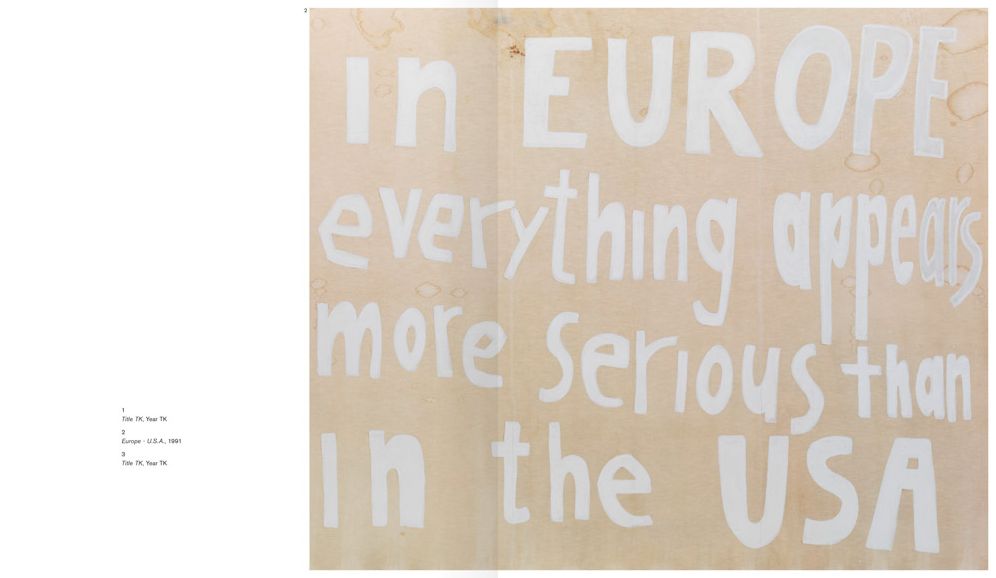 2
in EUROPE
everything appears
more serious than
in the USA
1
Title TK, Year TK
2
Europe - U.S.A., 1991
3
Title TK, Year TK